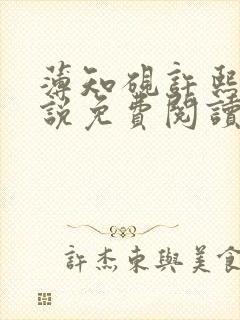 薄知硯許熙
說免費閱讀
許杰東與美食